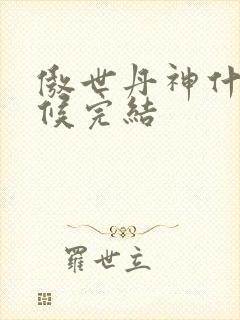 傲世丹神什
候完結
羅世立